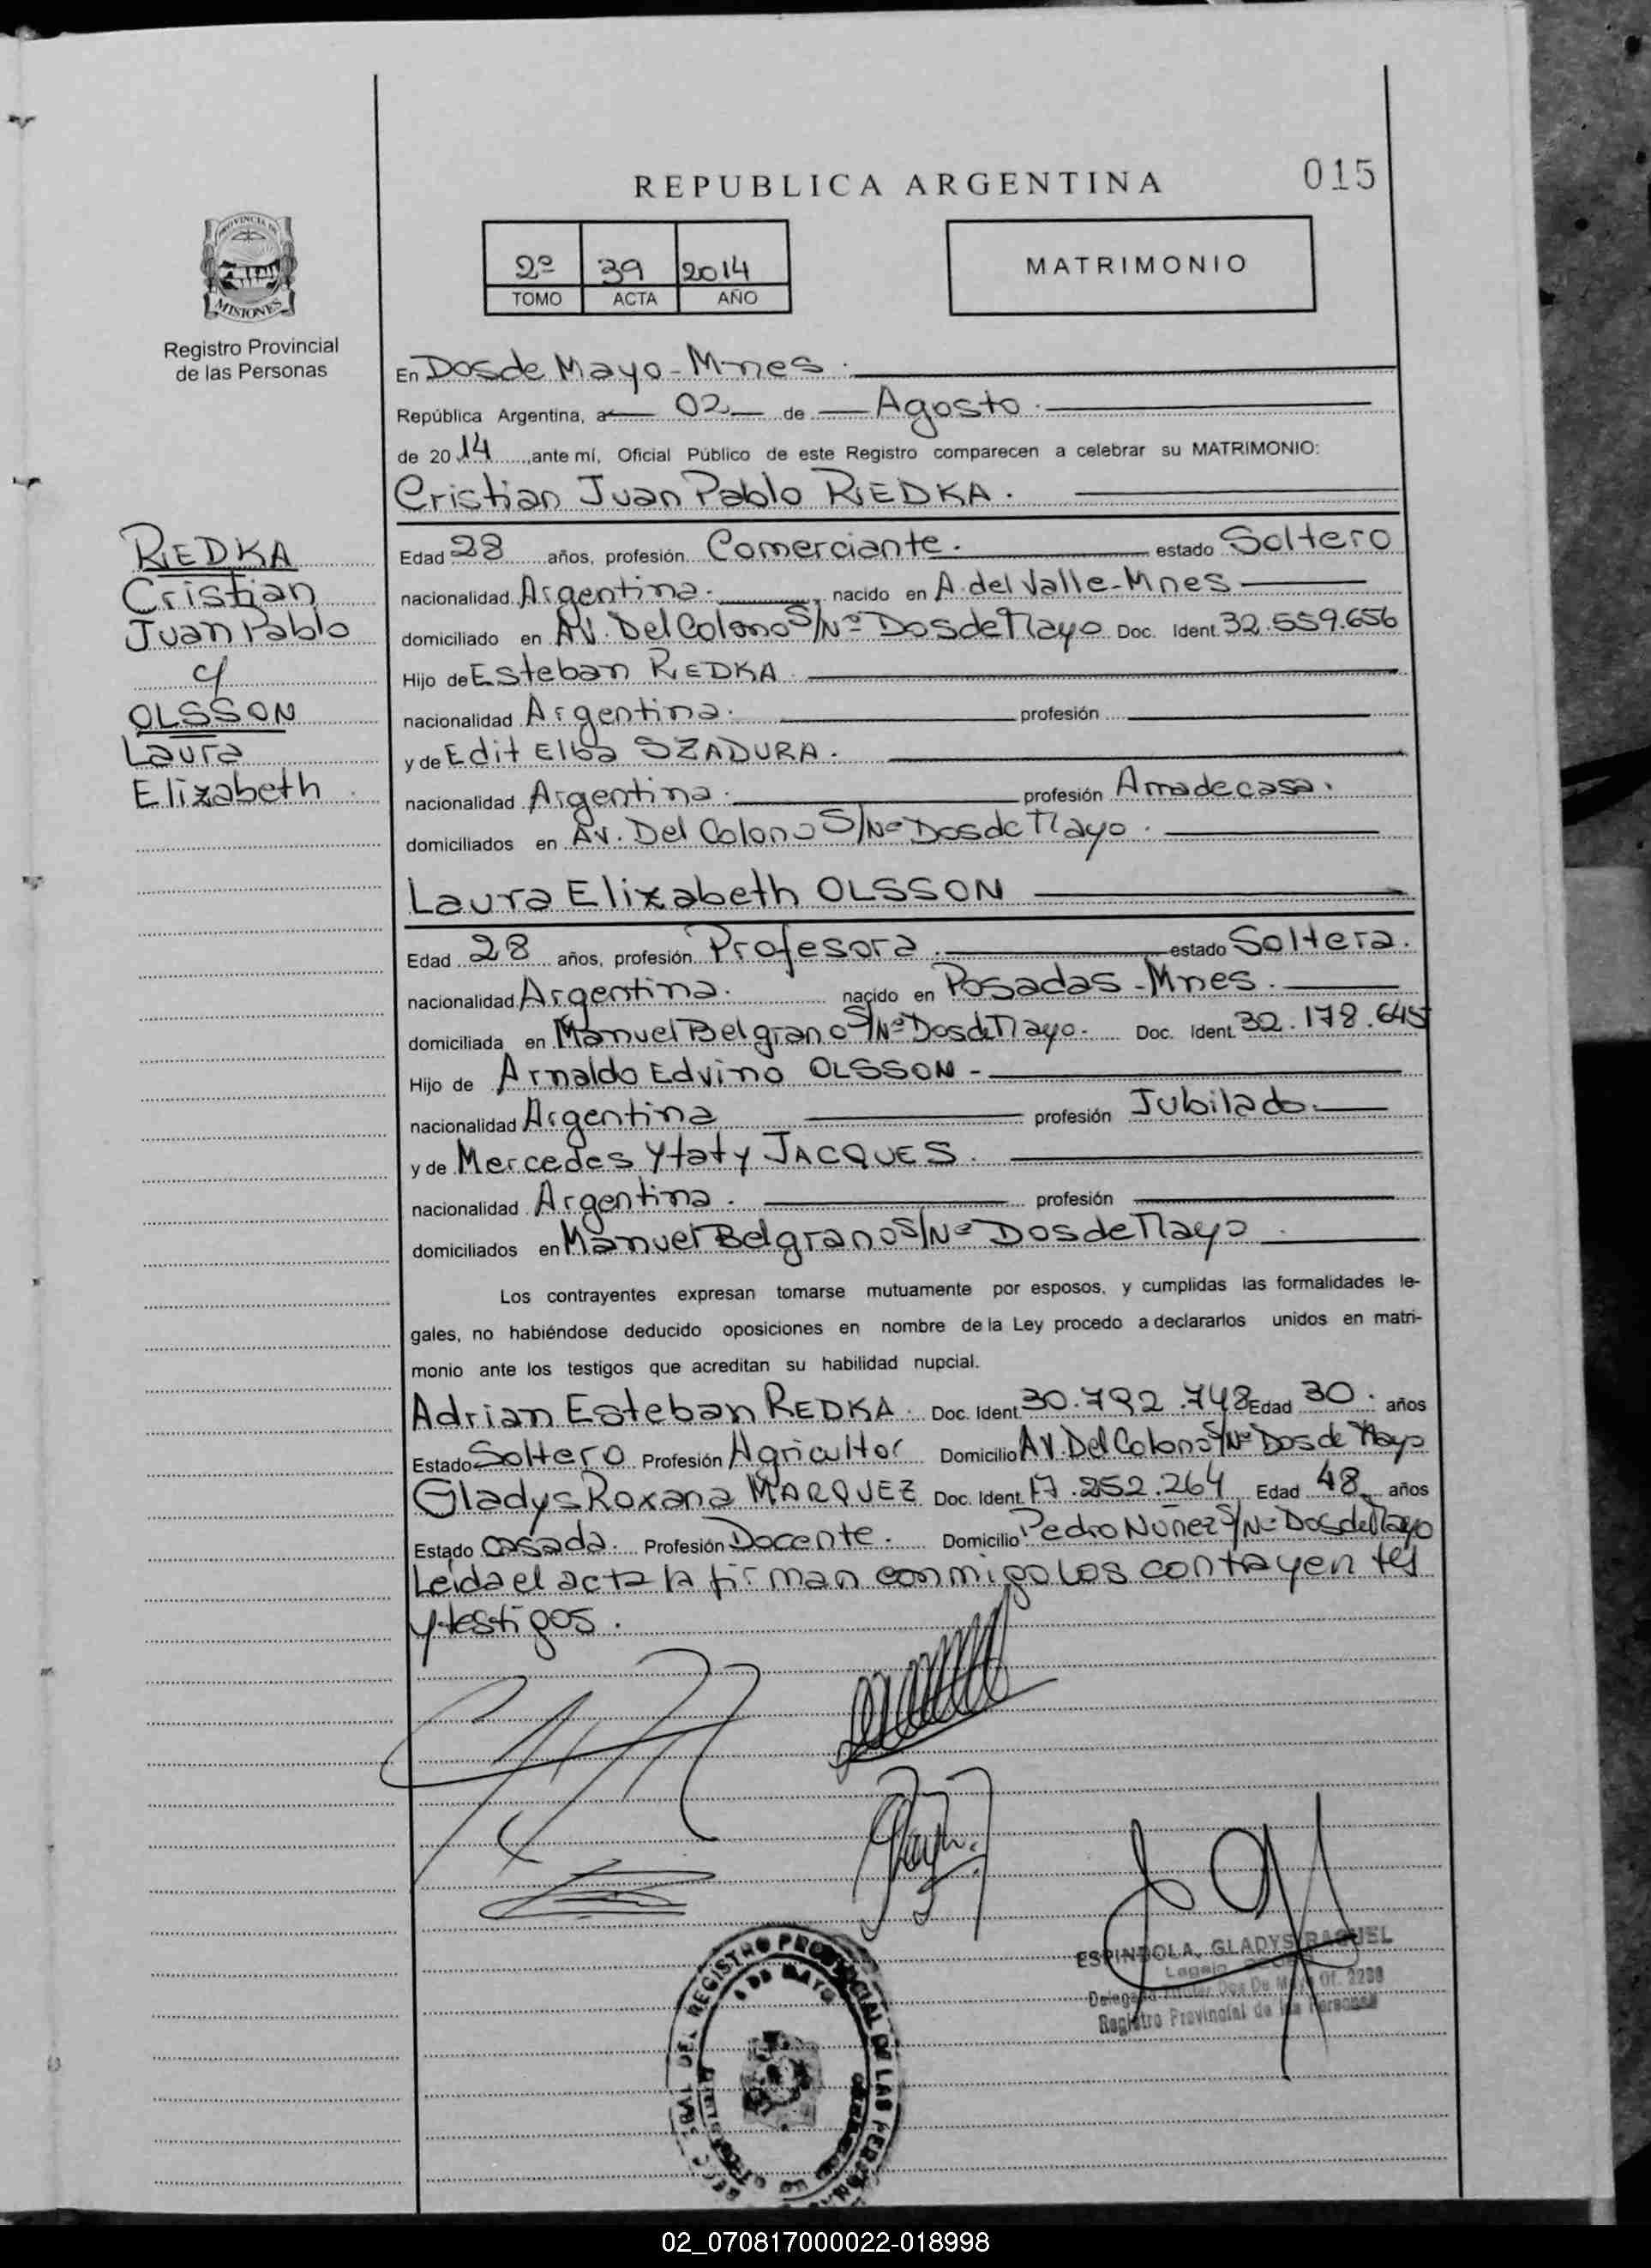 015
REPUBLICA ARGENTINA
PROVINCIA DE
MISIONES
Registro Provincial
de las Personas
2º 39 2014
TOMO ACTA AÑO
MATRIMONIO
En Dos de Mayo - Mnes.
República Argentina, a 02 de Agosto.
de 2014, ante mí, Oficial Público de este Registro comparecen a celebrar su MATRIMONIO:
Cristian Juan Pablo RIEDKA.
RIEDKA
Cristian
Juan Pablo
c/
OLSSON
Laura
Elizabeth.
Edad 28 años, profesión Comerciante. estado Soltero
nacionalidad Argentina. nacido en A. del Valle - Mnes
domiciliado en Av. Del Colono S/Nº Dos de Mayo Doc. Ident. 32.559.656
Hijo de Esteban RIEDKA.
nacionalidad Argentina. profesión
y de Edit Elba SZADURA.
nacionalidad Argentina. profesión Ama de casa.
domiciliados en Av. Del Colono S/Nº Dos de Mayo.
Laura Elizabeth OLSSON
Edad 28 años, profesión Profesora. estado Soltera.
nacionalidad Argentina. nacido en Posadas - Mnes.
domiciliada en Manuel Belgrano S/Nº Dos de Mayo. Doc. Ident. 32.178.645
Hijo de Arnaldo Edvino OLSSON -
nacionalidad Argentina profesión Jubilado.
y de Mercedes Ytaty JACQUES.
nacionalidad Argentina. profesión
domiciliados en Manuel Belgrano S/Nº Dos de Mayo.
Los contrayentes expresan tomarse mutuamente por esposos, y cumplidas las formalidades le-
gales, no habiéndose deducido oposiciones en nombre de la Ley procedo a declararlos unidos en matri-
monio ante los testigos que acreditan su habilidad nupcial.
Adrian Esteban REDKA. Doc. Ident. 30.792.748 Edad 30. años
Estado Soltero Profesión Agricultor Domicilio Av. Del Colono S/Nº Dos de Mayo
Gladys Roxana MARQUEZ Doc. Ident. 17.252.264 Edad 48 años
Estado Casada. Profesión Docente. Domicilio Pedro Nunez S/Nº Dos de Mayo
Leida el acta la firman conmigo los contrayentes
y testigos.
ESPINDOLA, GLADYS RAQUEL
Legajo
Delegada Titular Dos De Mayo Of. 2238
Registro Provincial de las Personas
DEL REGISTRO PROVINCIAL DE LAS PERSONAS
DE MAYO
02_070817000022-018998